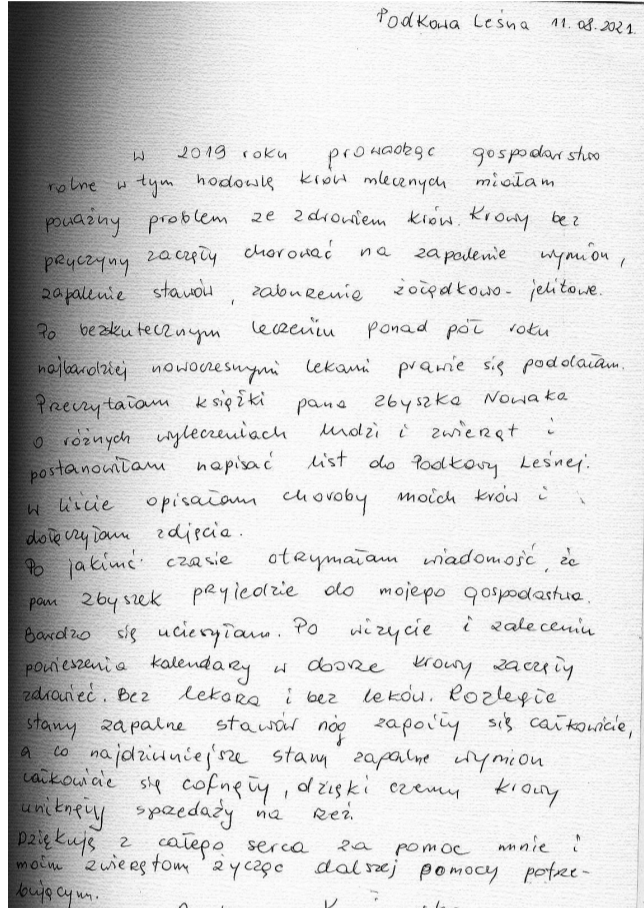 Podkowa Leśna 11.08.2021
W 2019 roku prowadząc gospodarstwo
rolne w tym hodowlę krów mlecznych miałam
poważny problem ze zdrowiem krów. Krowy bez
pryczyny zaczęły chorować na zapalenie wymion,
zapalenie stawów, zaburzenie żołądkowo-jelitowe.
Po bezkutecznym leczeniu ponad pół roku
najbardziej nowoczesnymi lekami prawie się poddałam.
Przeczytałam książki pana Zbyszka Nowaka
o różnych wyleczeniach ludzi i zwierząt i
postanowiłam napisać list do Podkowy Leśnej.
W liście opisałam choroby moich krów i
dołączyłam zdjęcia.
Po jakimś czasie otrzymałam wiadomość, że
pan Zbyszek pryjedzie do mojego gospodastwa.
Bardzo się ucieszyłam. Po wizycie i zaleceniu
powieszenia kalendary w oborze krowy zaczęły
zdrowieć. Bez lekarza i bez leków. Rozległe
stany zapalne stawów nóg zagoiły się całkowicie,
a co najdziwniejsze stany zapalne wymion
całkowicie się cofnęły, dzięki czemu krowy
uniknęły sprzedaży na rzeź.
Dziękuję z całego serca za pomoc mnie i
moim zwierętom życząc dalszej pomocy potrze-
bującym.